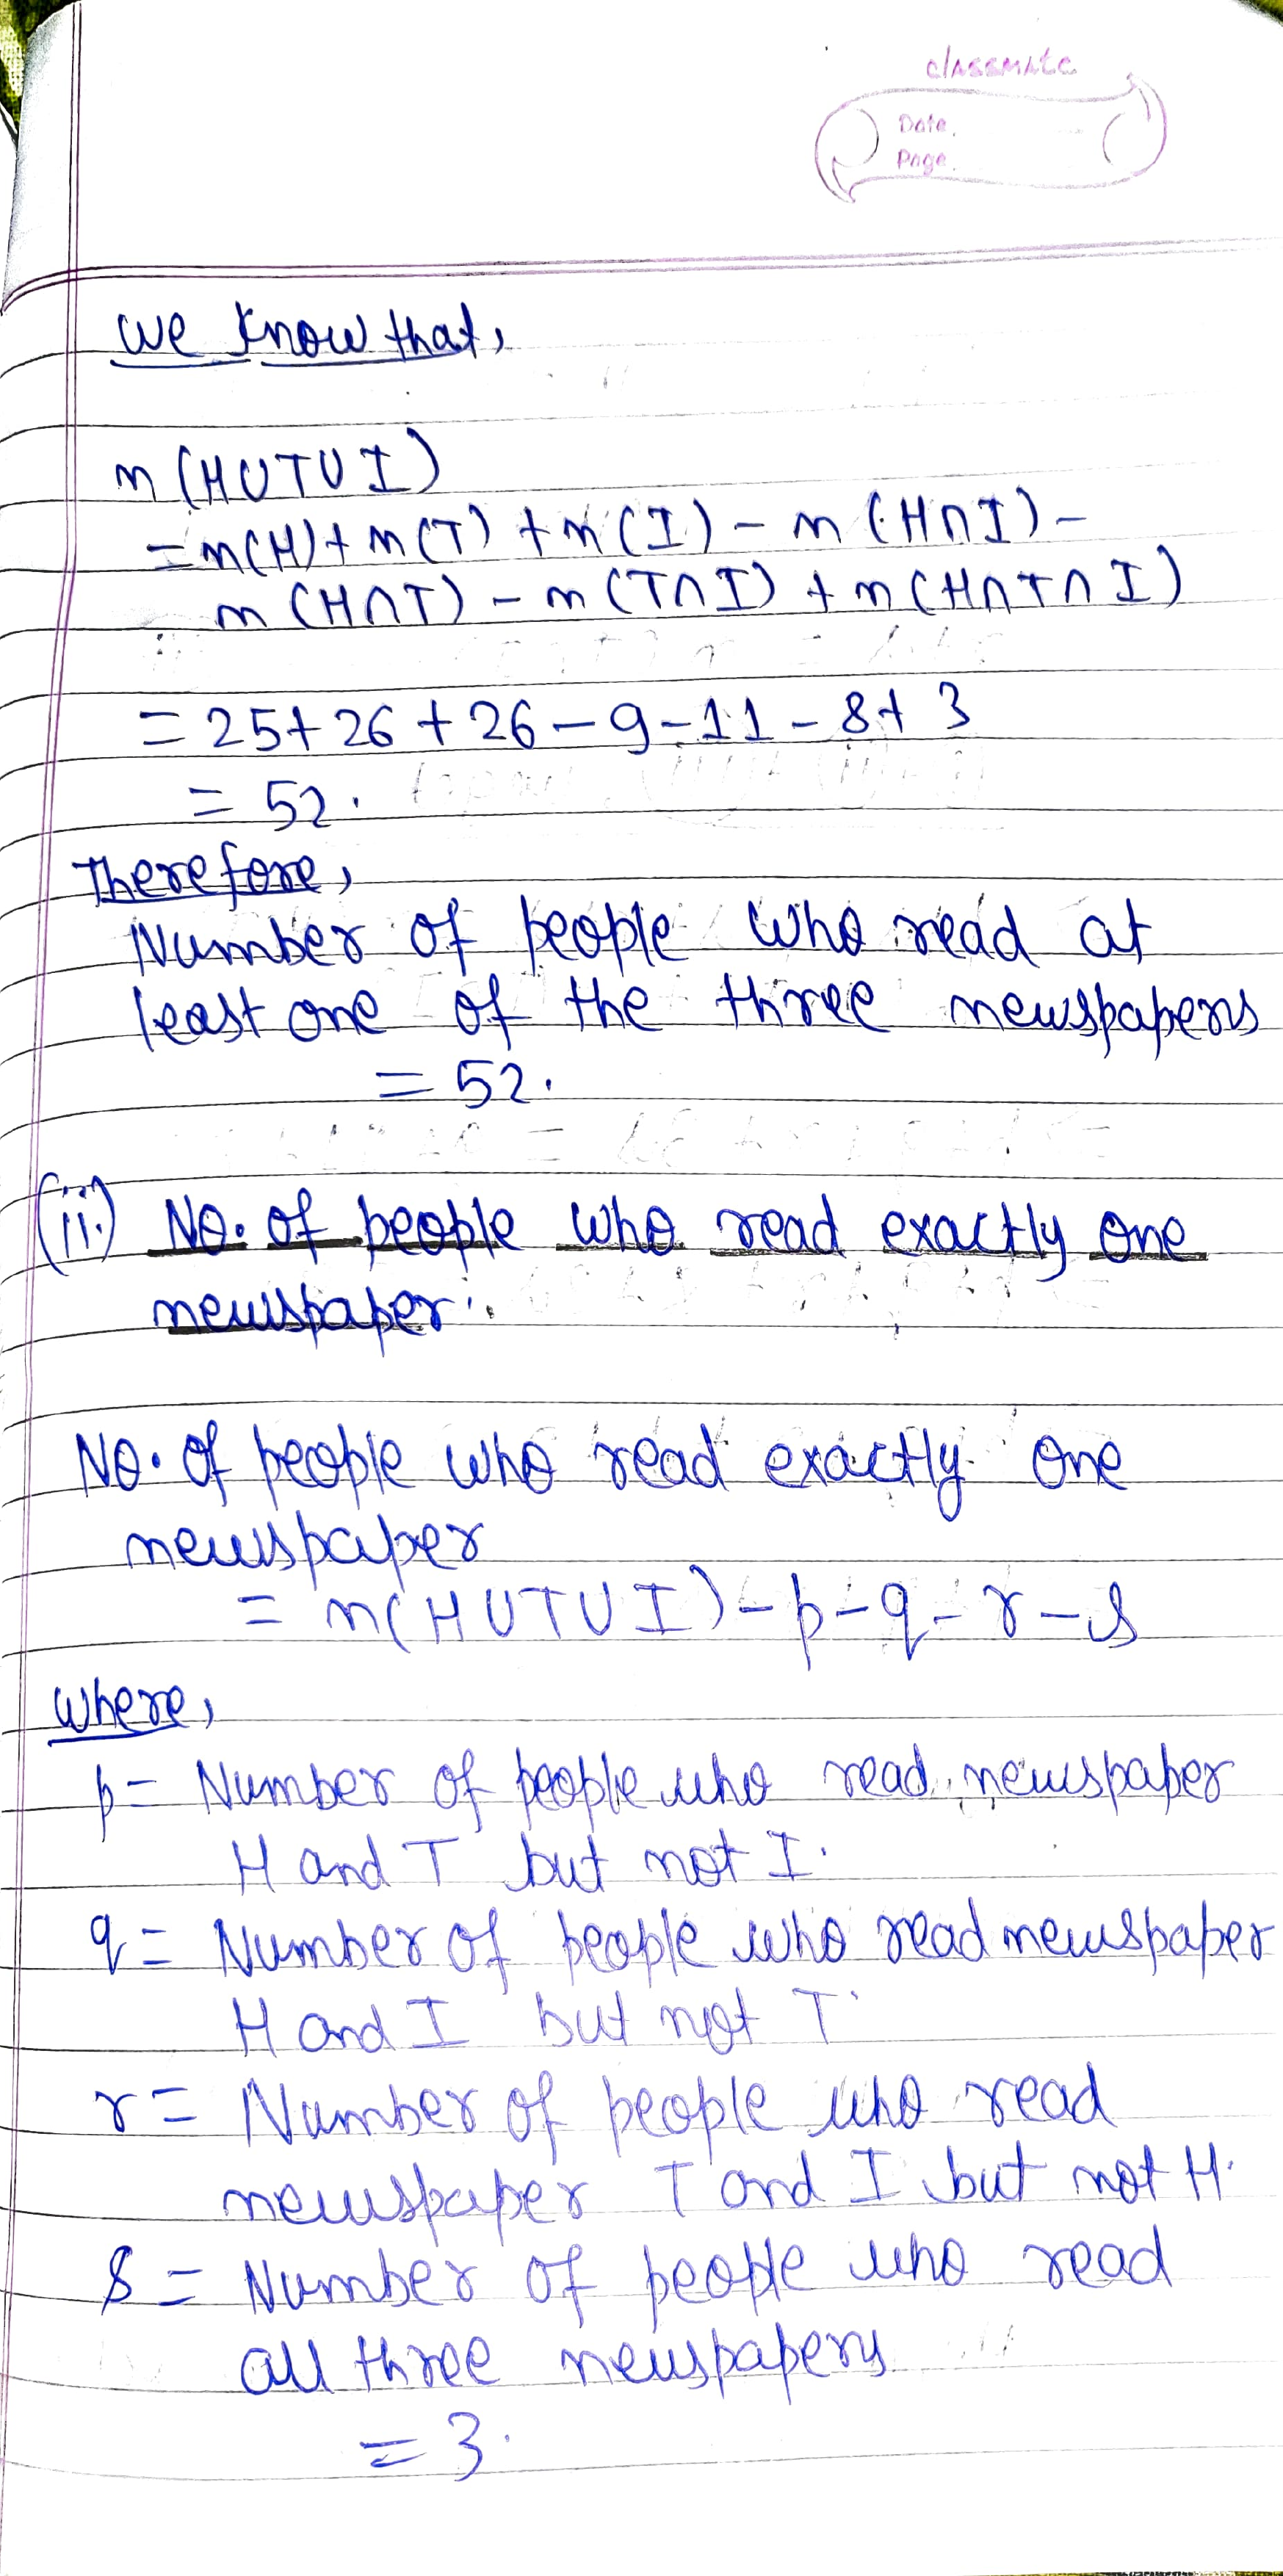 classmate
Date.
Page.
We know that,
n (HUTUI)
= n(H) + n(T) + n(I) - n(H∩I) -
n (H∩T) - n (T∩I) + n (H∩T∩I)
= 25+ 26 + 26 - 9 - 11 - 8 + 3
= 52.
Therefore,
Number of people who read at
least one of the three newspapers
= 52.
(ii) No. of people who read exactly one
newspaper.
No. of people who read exactly one
newspaper
= n(HUTUI) - p - q - r - s
where,
p = Number of people who read newspaper
H and T but not I.
q = Number of people who read newspaper
H and I but not T.
r = Number of people who read
newspaper T and I but not H.
s = Number of people who read
all three newspapers
= 3.